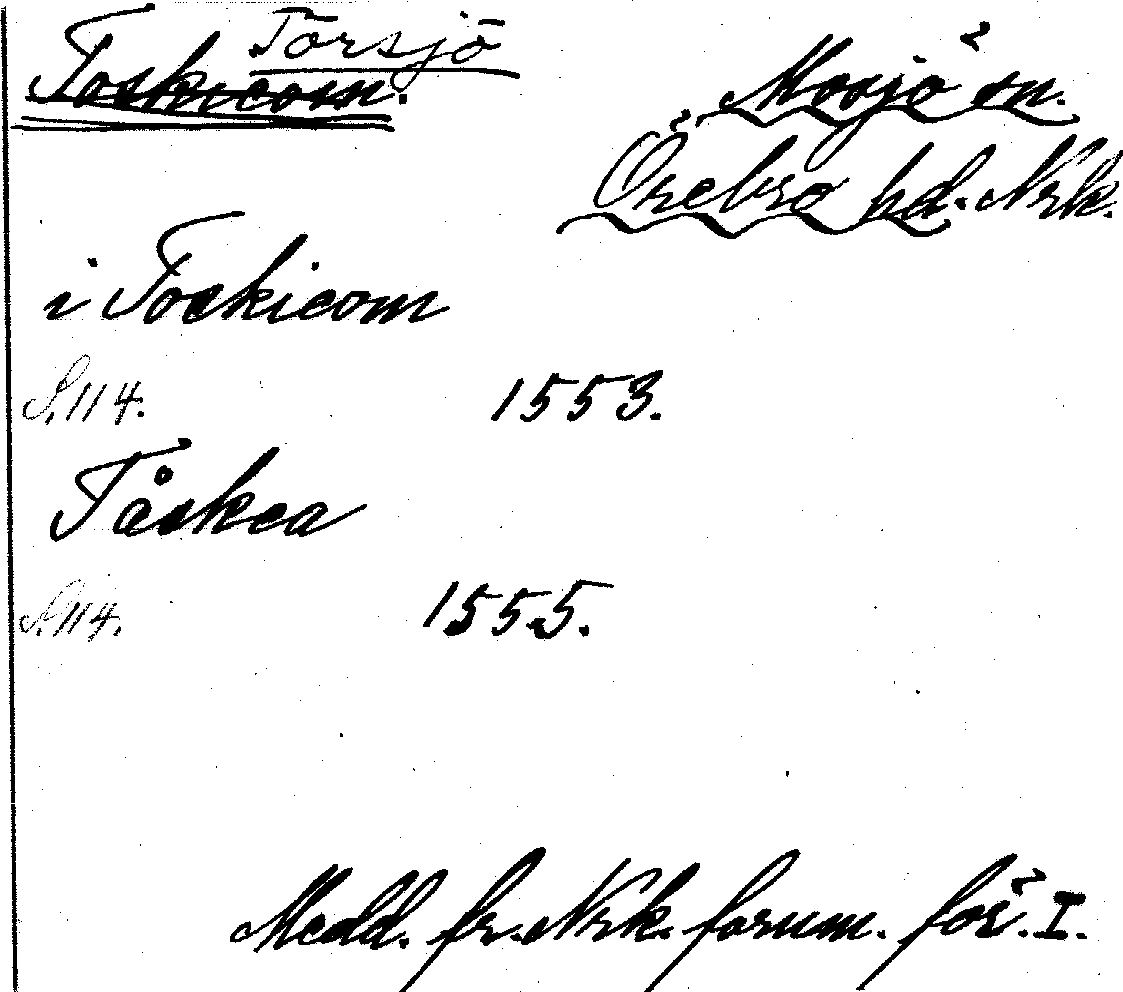 Torsjö
Toskicom.
Mosjö sn.
Örebro hd. Nrk.
i Toskicom
S. 114.
1553.
Tåskea
S. 114.
1555.
Medd. fr. Nrk. fornm. för. I.